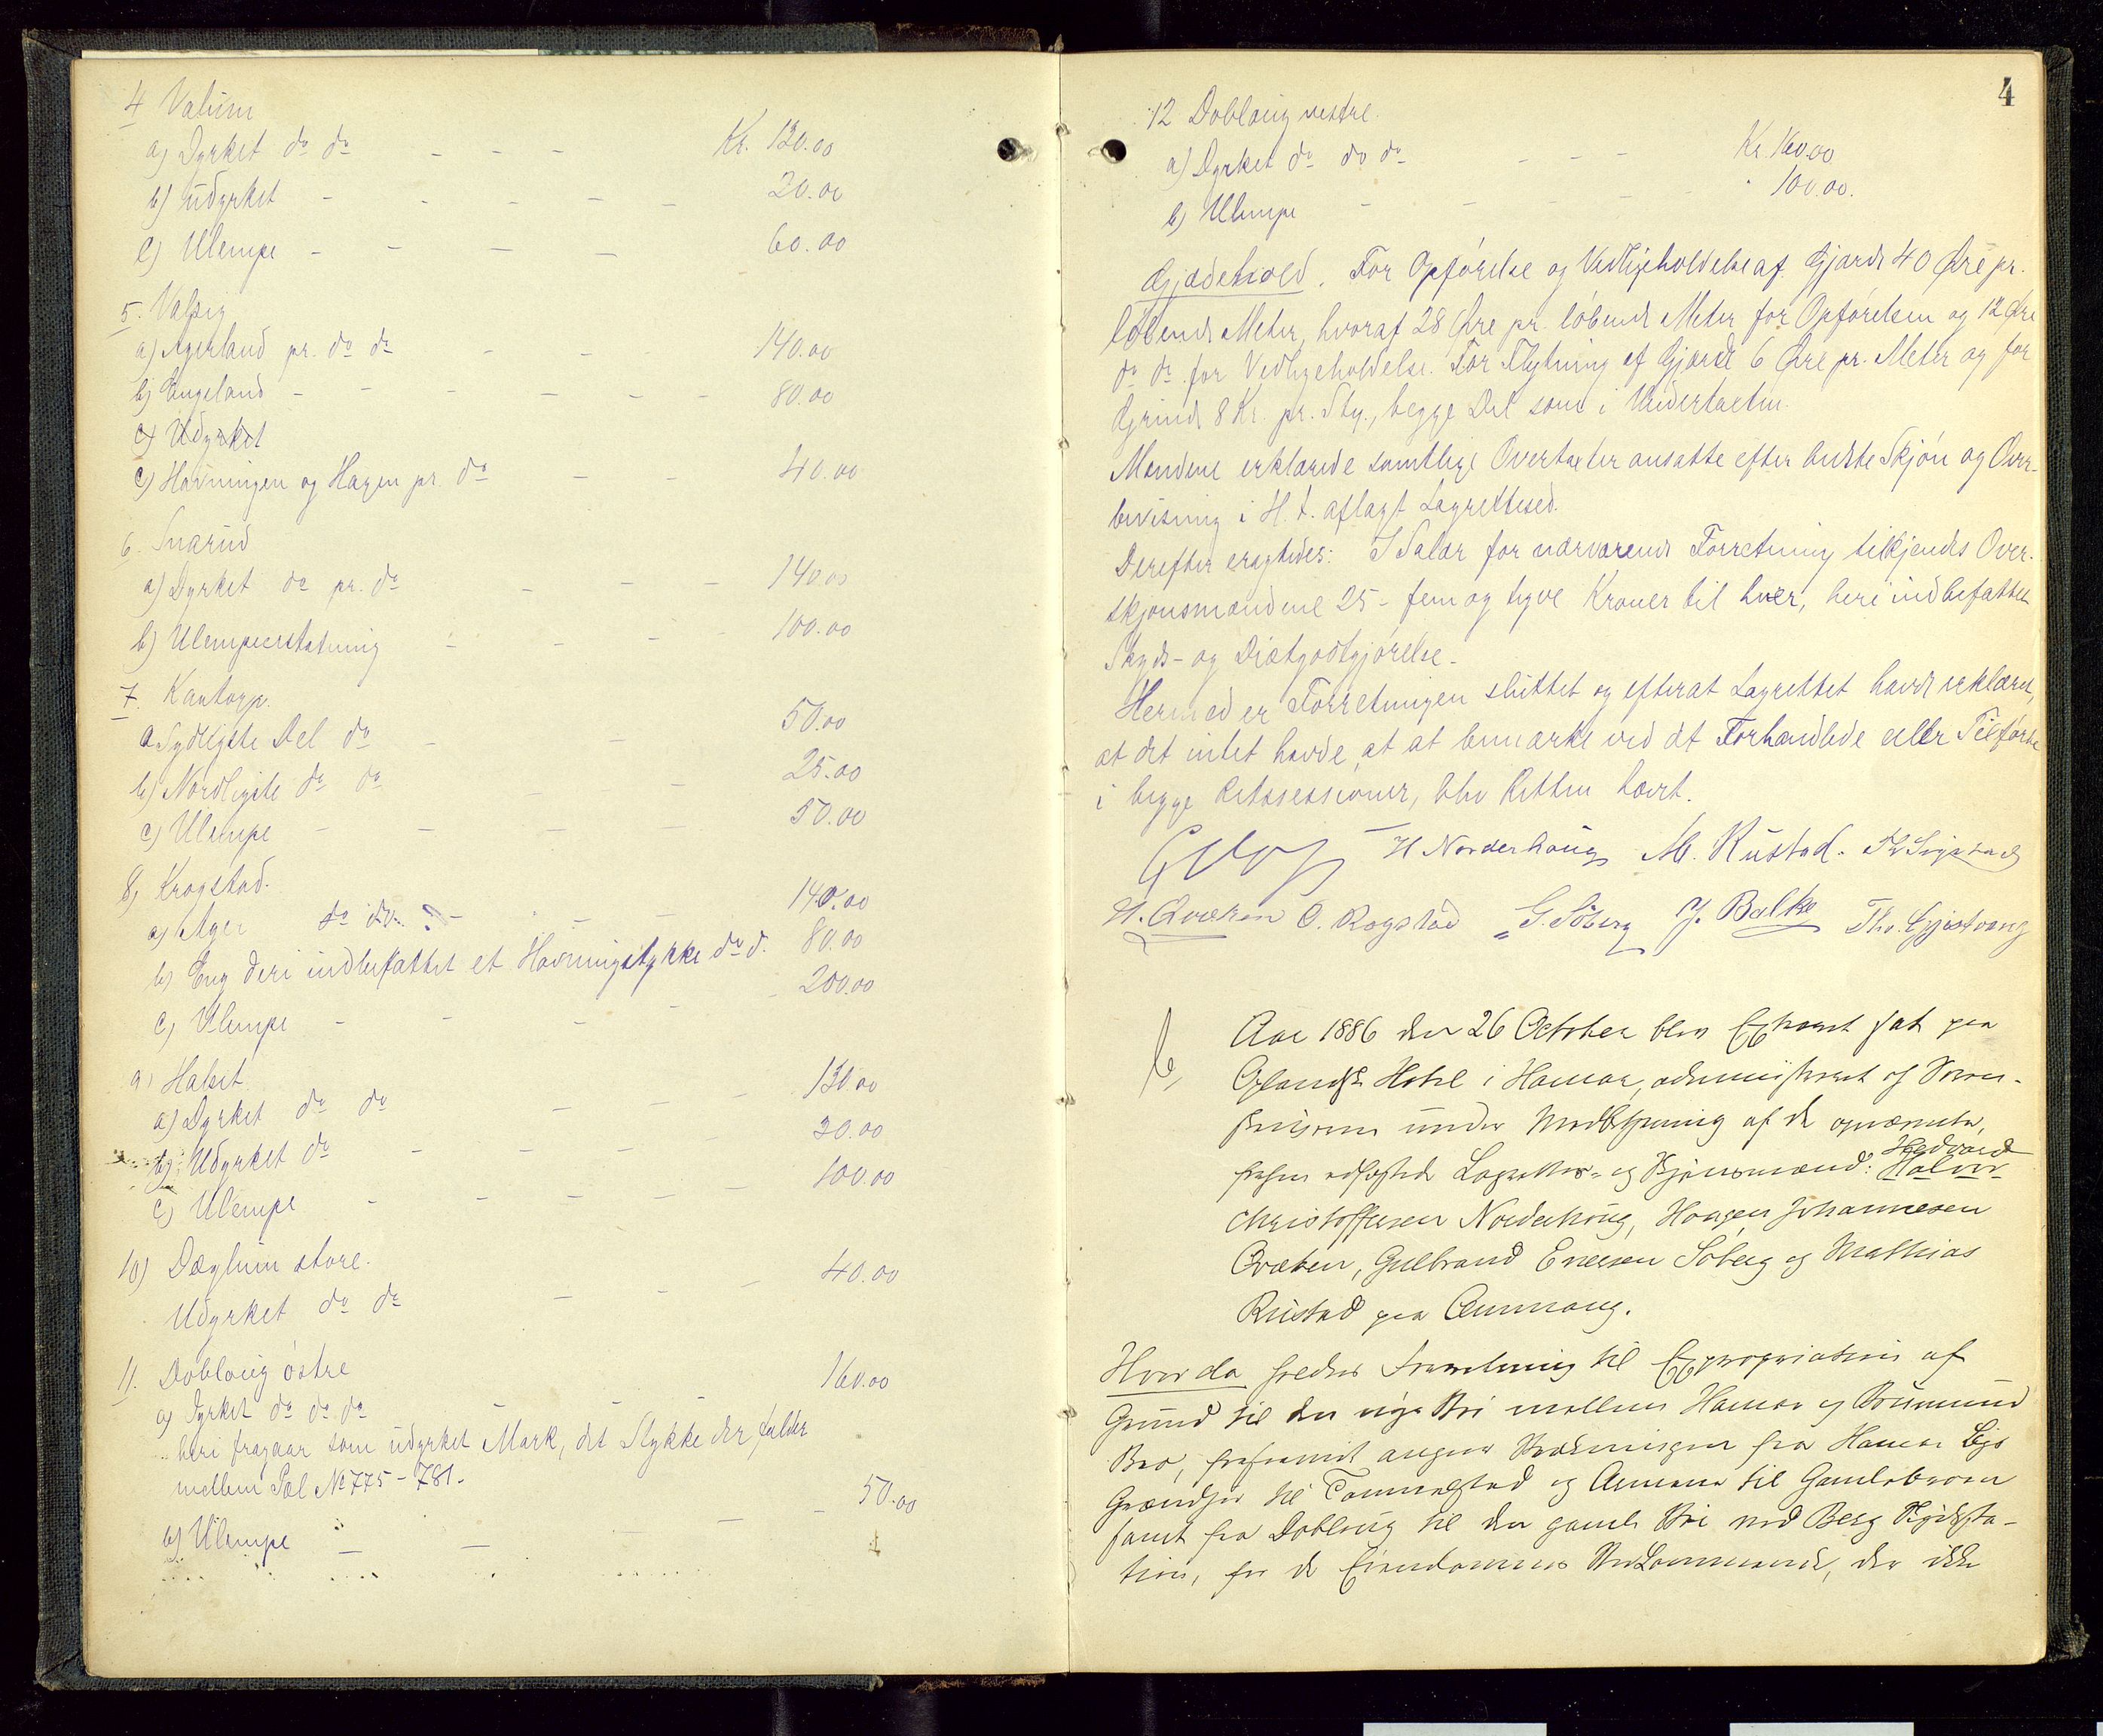 4 Valum
a) Dyrket do do - - - Kr. 130.00
b) Udyrket - - - - - 20.00
c) Ulempe - - - - 60.00
5. Valsig
a) Agerland pr. do do - - - 140.00
b) Engeland - - - - - - 80.00
c) Udyrket
c) Havningen og Hagen pr. do - - 40.00
6. Snarud
a) Dyrket do pr. do - - - 140.00
b) Ulempeerstatning - - - - 100.00
7. Kantorp.
a Sydligste Del do - - 50.00
b) Nordligste do do - - - 25.00
c) Ulempe - - - - 50.00
8, Krogstad.
a) Ager do do - - - 140.00
b) Eng deri indbefattet et Havningstykke do d. 80.00
c) Ulempe - - - - - 200.00
9, Halset
a) Dyrket do do - - - 130.00
b) Udyrket do - - - - 30.00
c) Ulempe - - - - - 100.00
10) Dæglum store.
Udyrket do do - - - 40.00
11. Dobloug östre
a) Dyrket do do do - - 160.00
heri fragaar som udyrket Mark, det Stykke der falder
mellem Pæl No 775 - 781 -
b) Ulempe - - - - - 50.00
4
12 Doblaug vestre.
a) Dyrket do do do - - - Kr. 160.00
b) Ulempe - - - - 100.00.
Gjærdehold. For Opförelse og Vedligeholdelse af Gjærde 40 Öre pr.
löbende Meter, hvoraf 28 Öre pr. löbende Meter for Opförelsen og 12 Öre
do do for Vedligeholdelse. For Flytning af Gjærde 6 Öre pr. Meter og for
Grinde 8 Kr. pr. Sty., begge Del som i Undertaxten.
Mændene erklærede samtlige Overtaxter ansatte efter bedste Skjön og Over-
bevisning i H. t. aflagt Lagrettesed.
Derefter eragtedes: I Salær for nærværende Forretning tilkjendes Over-
skjönsmændene 25 - fem og tyve Kroner til hver, heri indbefattet
Skyds- og Diætgodtgjörelse -
Hermed er Forretningen sluttet og efterat Lagrettet havde erklæret,
at det intet havde, at at bemærke ved det Forhandlede eller Tilförte
i begge Retssessioner, blev Retten hævet.
H Norderhaug M. Rustad.
H. Qvæken O. Rogstad G. Söberg J. Balke Thv. Gjöstvang
Aar 1886 den 26 October blev Extraret sat paa
Hotel i Hamar, administreret af Soren-
skriveren under Medbetjening af de opnævnte,
forhen edfæstede Lagrettes- og Skjönsmænd: Halvor Hedvard
Christoffersen Norderhoug, Haagen Johannesen
Qvæken, Gulbrand Enersen Söberg og Mathias
Rustad paa Ommang.
Hvor da foretoges Forretning til Expropriation af
Grund til den nye Vei mellem Hamar og Brumund
Bro, forsaavidt angaar Strækningen fra Hamar Bys
Grændse til Tommelstad og Aamann til Gamlebroen
samt fra Doblaug til den gamle Vei ved Berg Skydssta-
tion, for de Eiendommes Vedkommende, der ikke